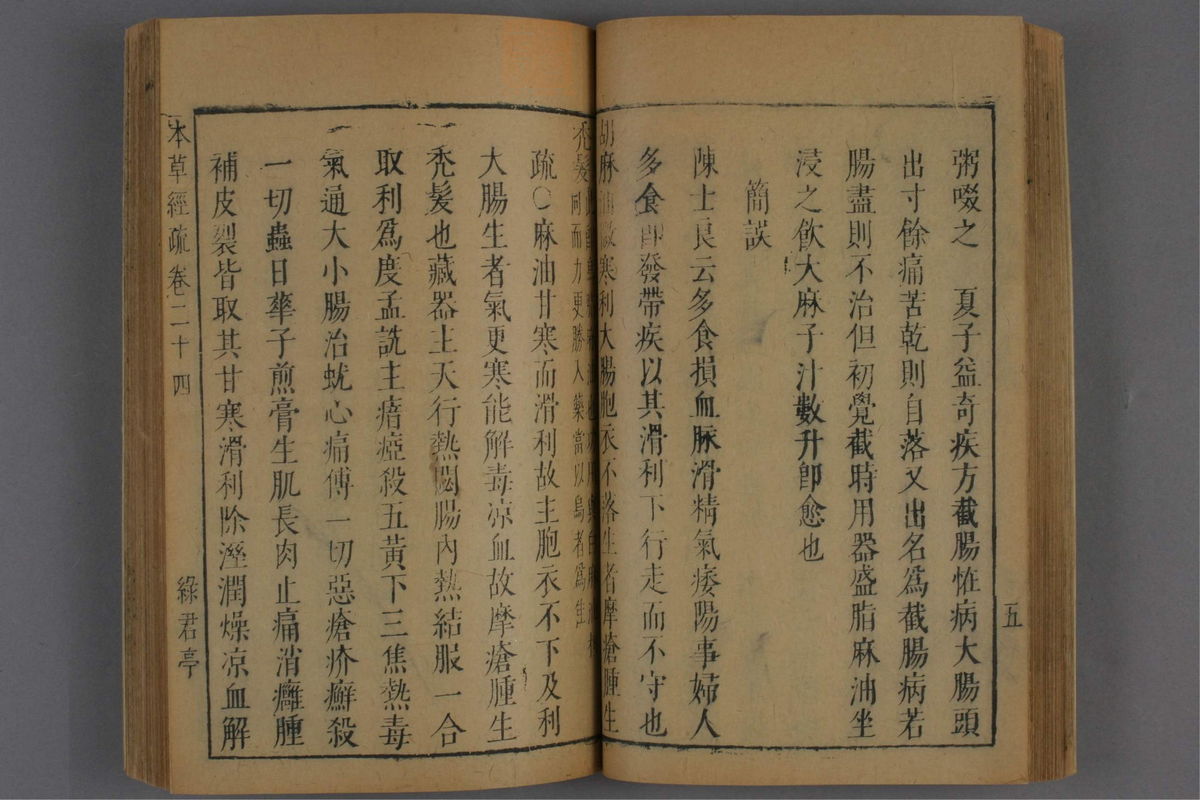 粥啜之　夏子益奇疾方截腸怪病大腸頭
出寸餘痛苦乾則自落又出名爲截腸病若
腸盡則不治但初覺截時用器盛脂麻油坐
浸之飲大麻子汁數升卽愈也
簡誤
陳士良云多食損血脉滑精氣痿陽事婦人
多食卽發帶疾以其滑利下行走而不守也
胡麻油微寒利大腸胞衣不落生者摩瘡腫生
禿髮
同而力更勝入藥當以烏者爲佳
疏〇麻油甘寒而滑利故主胞衣不下及利
大腸生者氣更寒能解毒凉血故摩瘡腫生
禿髮也藏器主天行熱閟腸內熱結服一合
取利爲度孟詵主瘖瘂殺五黃下三焦熱毒
氣通大小腸治蚘心痛傅一切惡瘡疥癬殺
一切蟲日華子煎膏生肌長肉止痛消癰腫
補皮裂皆取其甘寒滑利除溼潤燥凉血解
本草經疏 卷二十四
綠君亭
五